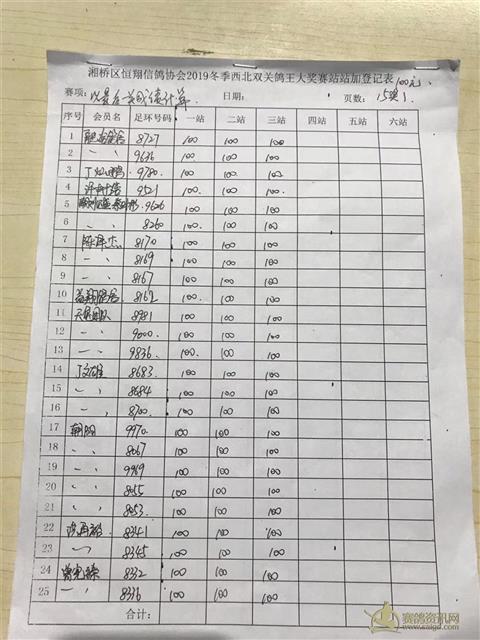 湘桥区恒翔信鸽协会2019冬季西北双关鸽王大奖赛站站加登记表 100元
赛项: 以最后一关成绩计算 日期: 页数: 15奖1
序号 会员名 足环号码 一站 二站 三站 四站 五站 六站
1 8727 100 100 100
2 〃 9636 100 100 100
3 9780 100 100 100
4 9521 100 100 100
5 9626 100 100 100
6 〃 8260 100 100 100
7 陈泽杰 8170 100 100 100
8 〃 8169 100 100 100
9 〃 8167 100 100 100
10 8162 100 100 100
11 8981 100 100 100
12 〃 9000 100 100 100
13 〃 9836 100 100 100
14 丁文雄 8683 100 100 100
15 〃 8684 100 100 100
16 〃 8700 100 100 100
17 9970 100 100 100
18 〃 8067 100 100 100
19 〃 9969 100 100 100
20 〃 8055 100 100 100
21 〃 8053 100 100 100
22 8341 100 100 100
23 〃 8345 100 100 100
24 8332 100 100 100
25 〃 8336 100 100 100
合计:
赛鸽资讯网
www.saigd.com